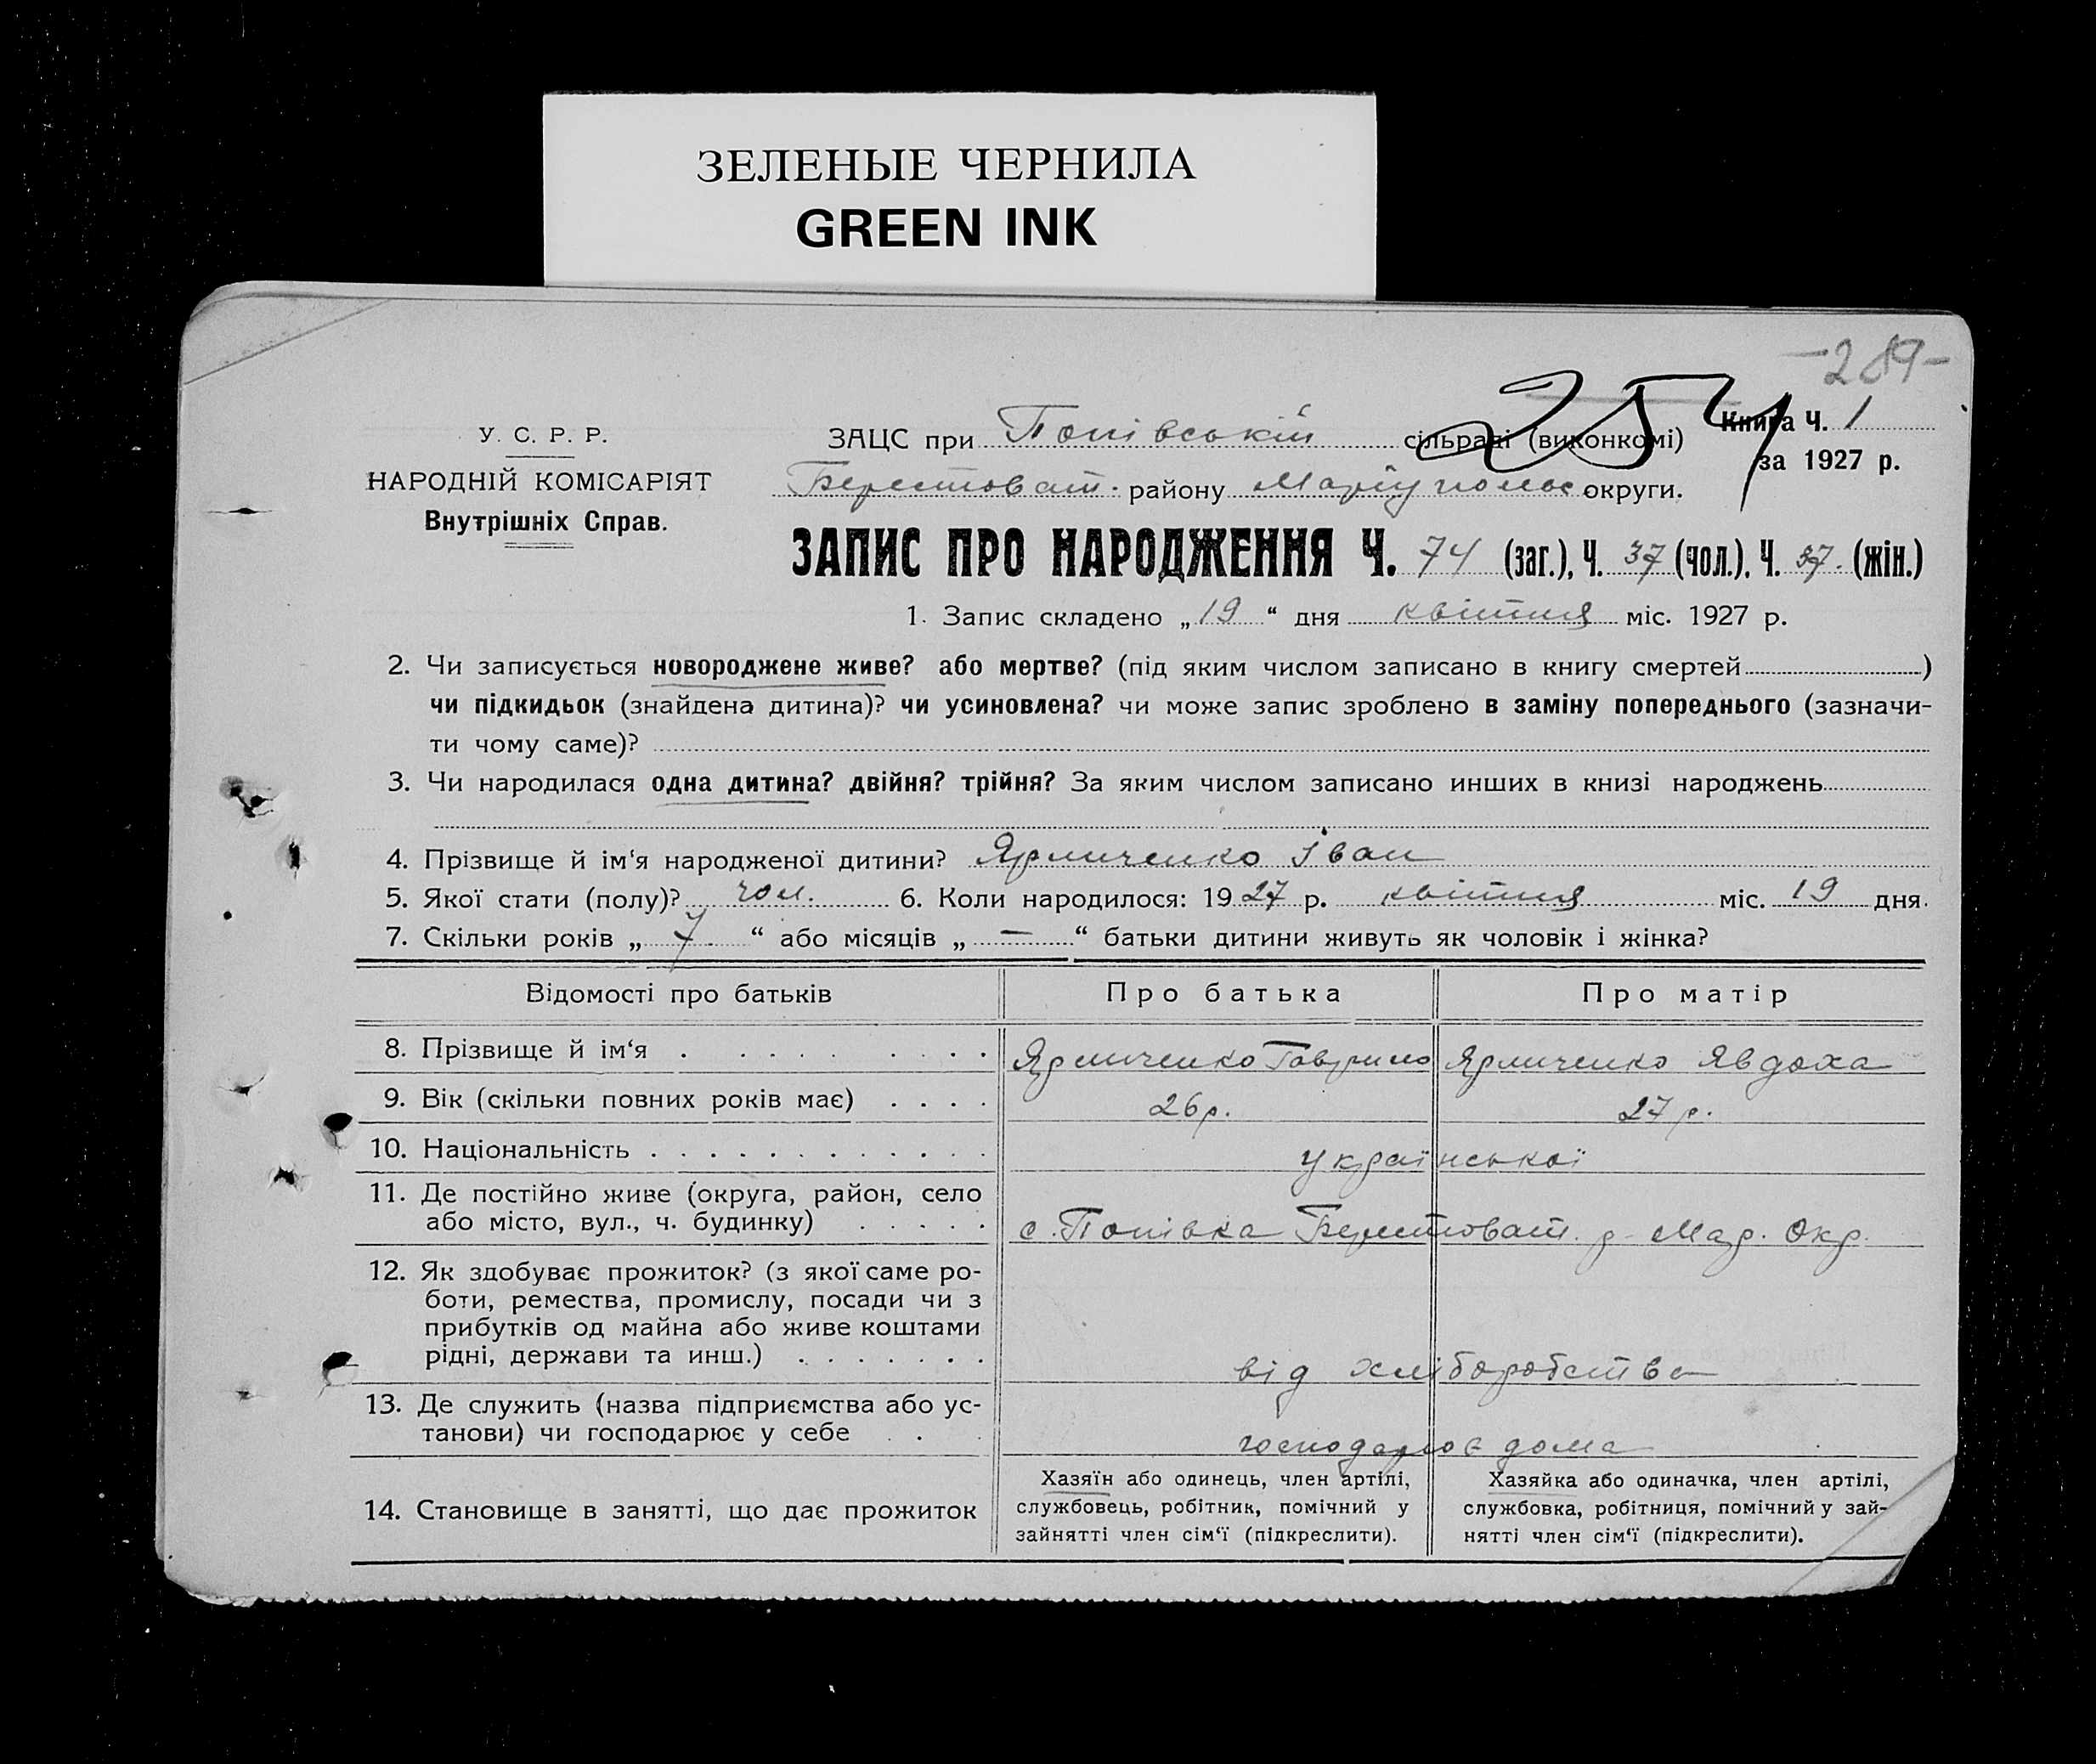 ЗЕЛЕНЫЕ ЧЕРНИЛА
GREEN INK
-289-
254
У. С. Р. Р.
НАРОДНІЙ КОМІСАРІЯТ
Внутрішніх Справ.
ЗАЦС при Попівській сільраді (виконкомі)
Книга Ч. 1
за 1927 р.
Берестоват. району Маріупольс округи.
ЗАПИС ПРО НАРОДЖЕННЯ Ч. 74 (заг.), Ч. 37 (чол.), Ч. 37. (жін.)
1. Запис складено „19“ дня квітня міс. 1927 р.
2. Чи записується новороджене живе? або мертве? (під яким числом записано в книгу смертей )
чи підкидьок (знайдена дитина)? чи усиновлена? чи може запис зроблено в заміну попереднього (зазначи-
ти чому саме)?
3. Чи народилася одна дитина? двійня? трійня? За яким числом записано инших в книзі народжень
4. Прізвище й ім‘я народженої дитини? Ярмиченко Іван
5. Якої стати (полу)? чол. 6. Коли народилося: 1927 р. квітня міс. 19 дня.
7. Скільки років „ 7. “ або місяців „ — “ батьки дитини живуть як чоловік і жінка?
Відомості про батьків Про батька Про матір
8. Прізвище й ім‘я Ярмиченко Гаврило Ярмиченко Явдоха
9. Вік (скільки повних років має) 26 р. 27 р.
10. Національність української
11. Де постійно живе (округа, район, село
або місто, вул., ч. будинку) с. Попівка Берестоват. р. Мар. Окр.
12. Як здобуває прожиток? (з якої саме ро-
боти, ремества, промислу, посади чи з
прибутків од майна або живе коштами
рідні, держави та инш.) від хліборобства
13. Де служить (назва підприємства або ус-
танови) чи господарює у себе господарює дома
14. Становище в занятті, що дає прожиток
Хазяїн або одинець, член артілі,
службовець, робітник, помічний у
зайнятті член сім‘ї (підкреслити).
Хазяйка або одиначка, член артілі,
службовка, робітниця, помічний у зай-
нятті член сім‘ї (підкреслити).